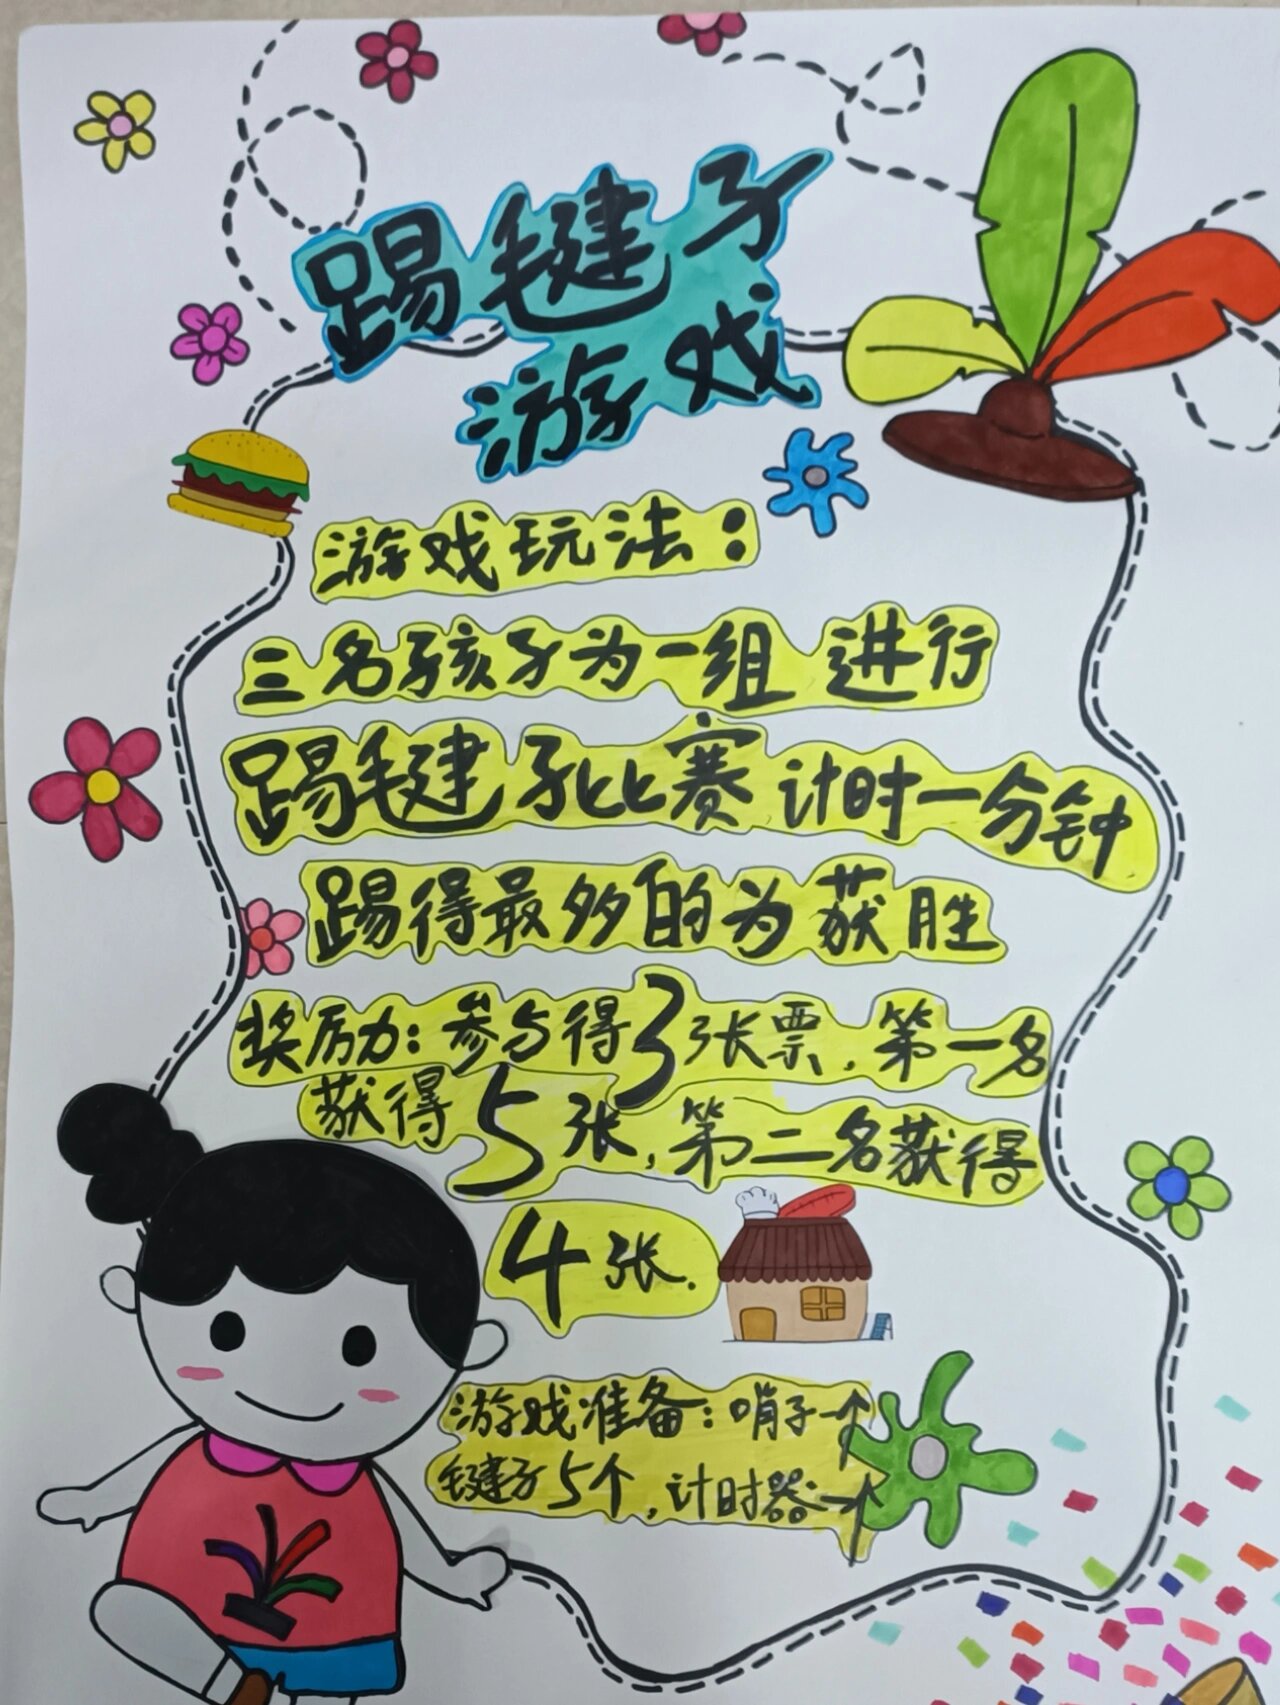 踢毽子
游戏
游戏玩法：
三名孩子为一组 进行
踢毽子比赛 计时一分钟
踢得最多的为获胜
奖励：参与得3张票，第一名
获得5张，第二名获得
4张.
游戏准备：哨子一个
毽子5个，计时器一个